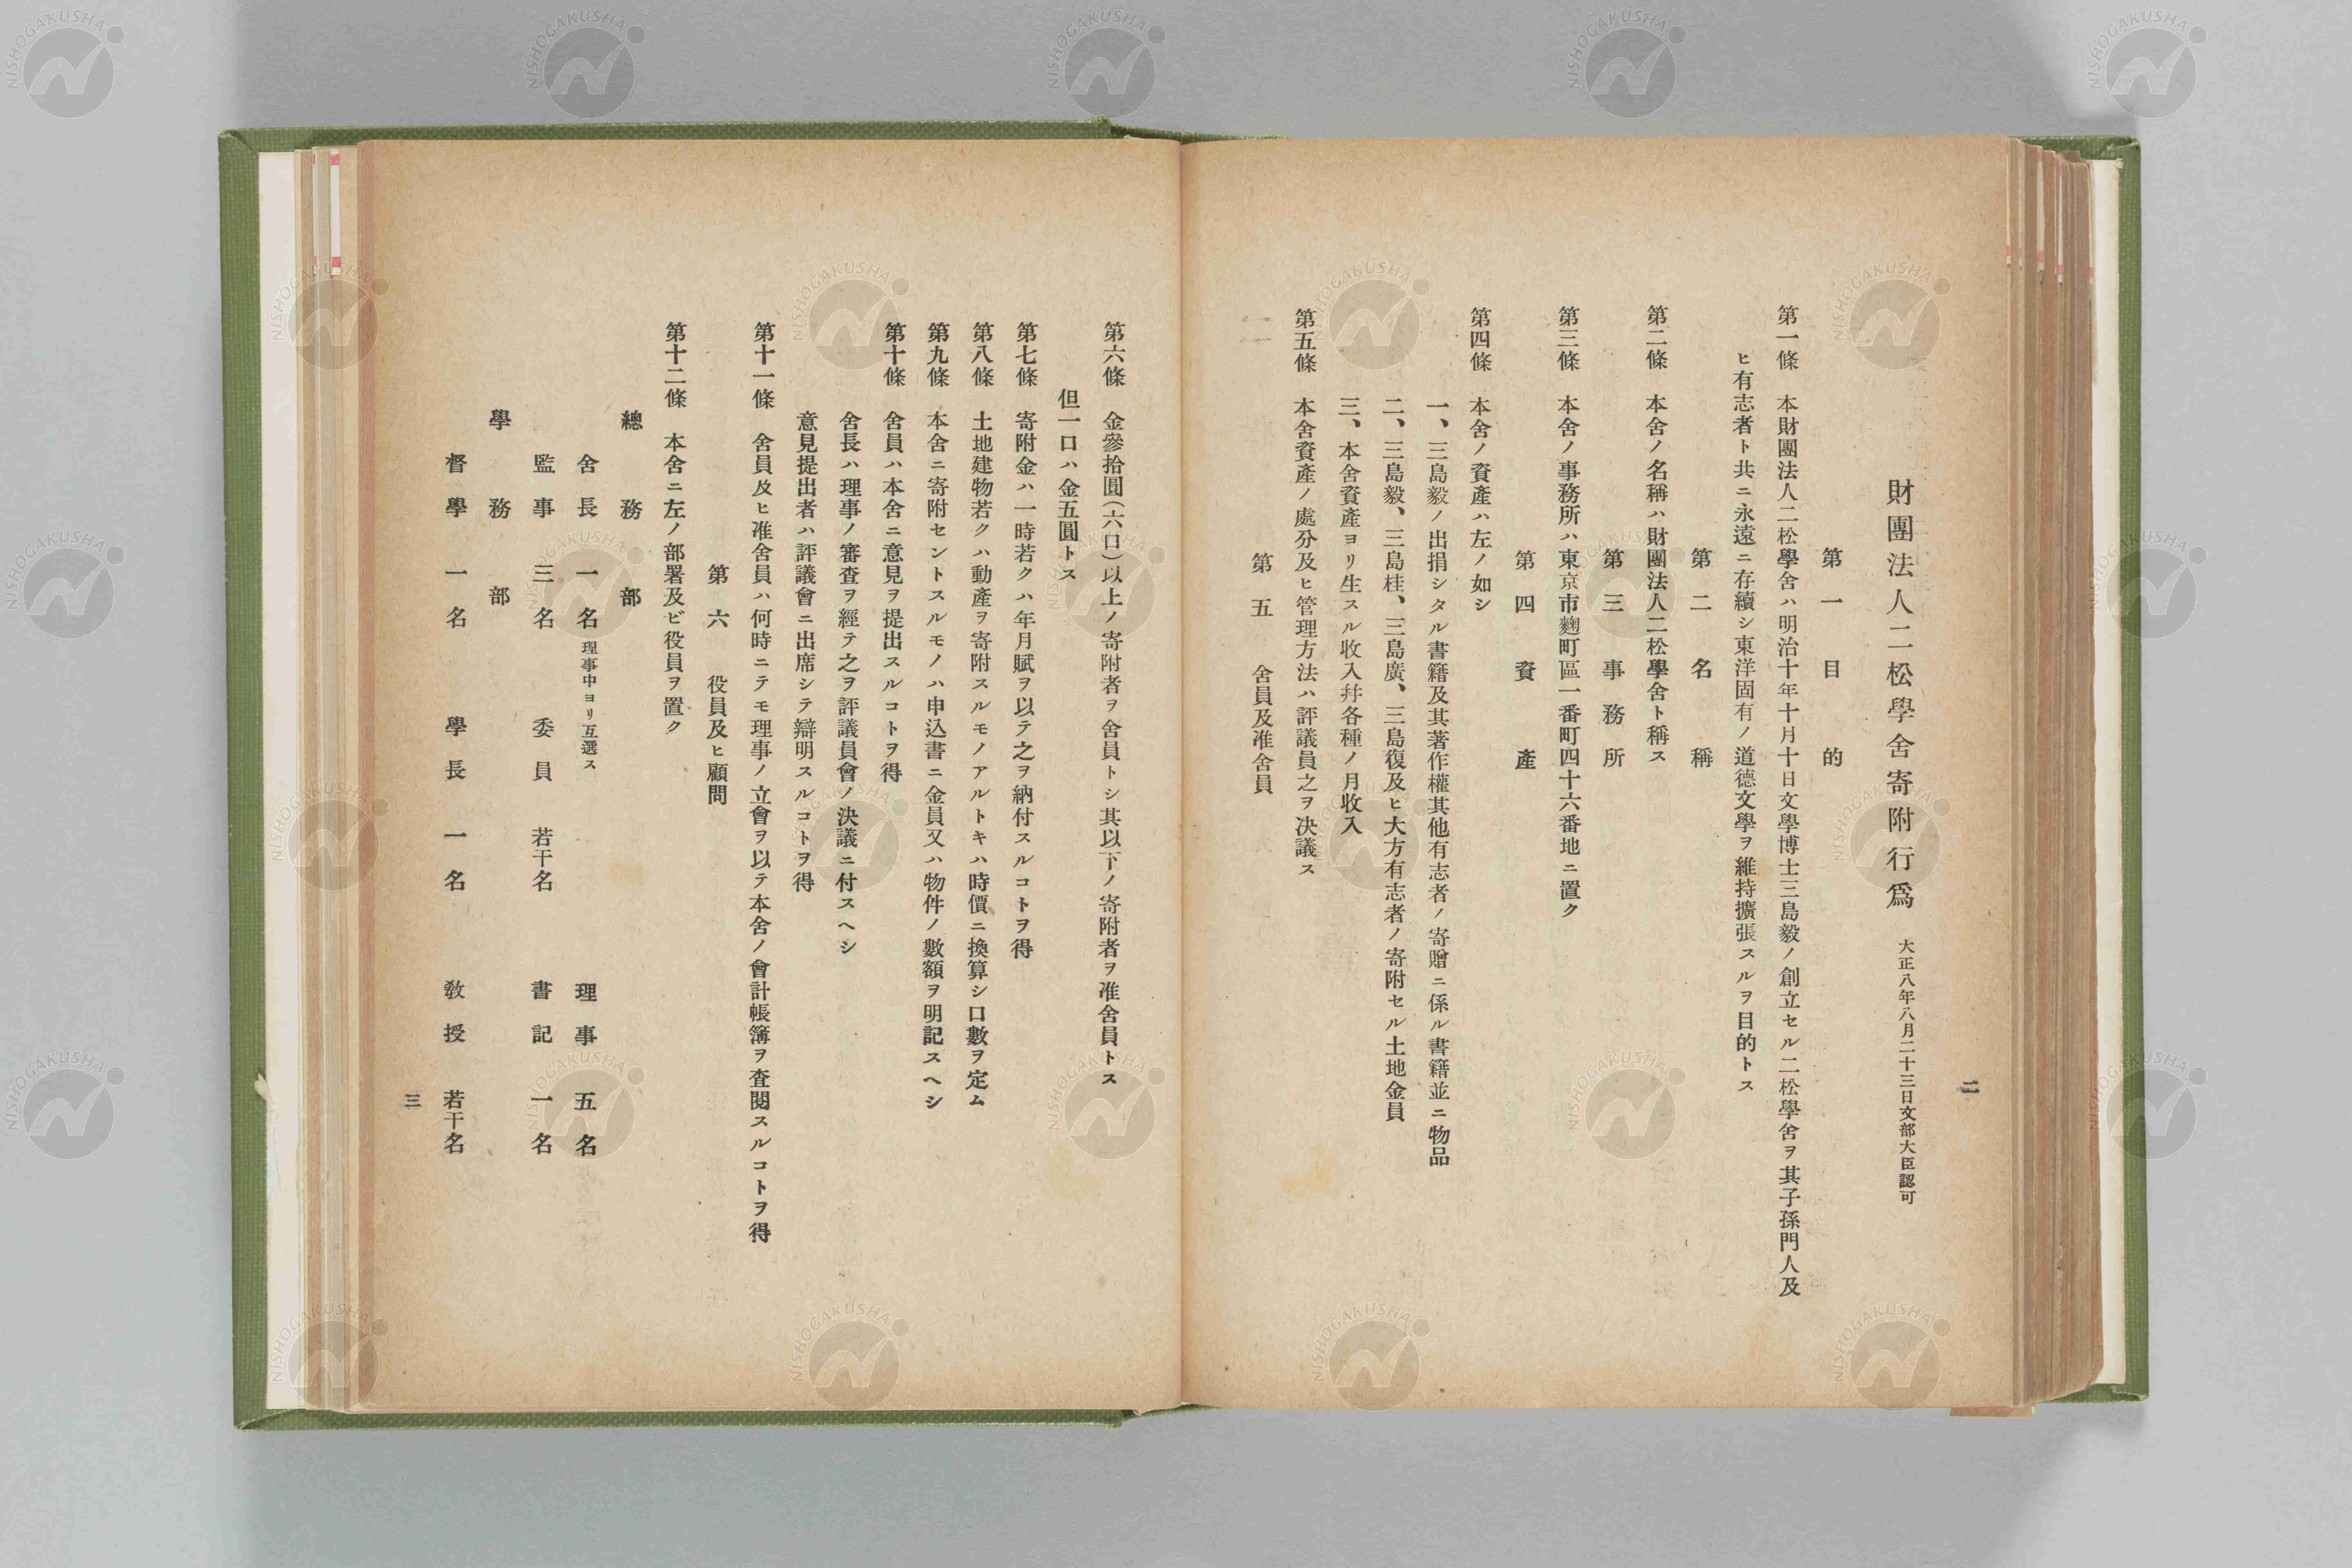 二
財團法人二松學舍寄附行爲 大正八年八月二十三日文部大臣認可
第一 目的
第一條 本財團法人二松學舍ハ明治十年十月十日文學博士三島毅ノ創立セル二松學舍ヲ其子孫門人及
ヒ有志者ト共ニ永遠ニ存續シ東洋固有ノ道德文學ヲ維持擴張スルヲ目的トス
第二 名稱
第二條 本舍ノ名稱ハ財團法人二松學舍ト稱ス
第三 事務所
第三條 本舍ノ事務所ハ東京市麴町區一番町四十六番地ニ置ク
第四 資產
第四條 本舍ノ資產ハ左ノ如シ
一、三島毅ノ出捐シタル書籍及其著作權其他有志者ノ寄贈ニ係ル書籍並ニ物品
二、三島毅、三島桂、三島廣、三島復及ヒ大方有志者ノ寄附セル土地金員
三、本舍資產ヨリ生スル收入幷各種ノ月收入
第五條 本舍資產ノ處分及ヒ管理方法ハ評議員之ヲ決議ス
第五 舍員及准舍員
第六條 金參拾圓(六口)以上ノ寄附者ヲ舍員トシ其以下ノ寄附者ヲ准舍員トス
但一口ハ金五圓トス
第七條 寄附金ハ一時若クハ年月賦ヲ以テ之ヲ納付スルコトヲ得
第八條 土地建物若クハ動產ヲ寄附スルモノアルトキハ時價ニ換算シ口數ヲ定ム
第九條 本舍ニ寄附セントスルモノハ申込書ニ金員又ハ物件ノ數額ヲ明記スヘシ
第十條 舍員ハ本舍ニ意見ヲ提出スルコトヲ得
舍長ハ理事ノ審査ヲ經テ之ヲ評議員會ノ決議ニ付スヘシ
意見提出者ハ評議會ニ出席シテ辯明スルコトヲ得
第十一條 舍員及ヒ准舍員ハ何時ニテモ理事ノ立會ヲ以テ本舍ノ會計帳簿ヲ査閱スルコトヲ得
第六 役員及ヒ顧問
第十二條 本舍ニ左ノ部署及ビ役員ヲ置ク
總務部
舍長 一名 理事中ヨリ互選ス 理事 五名
監事 三名 委員 若干名 書記 一名
學務部
督學 一名 學長 一名 敎授 若干名
三